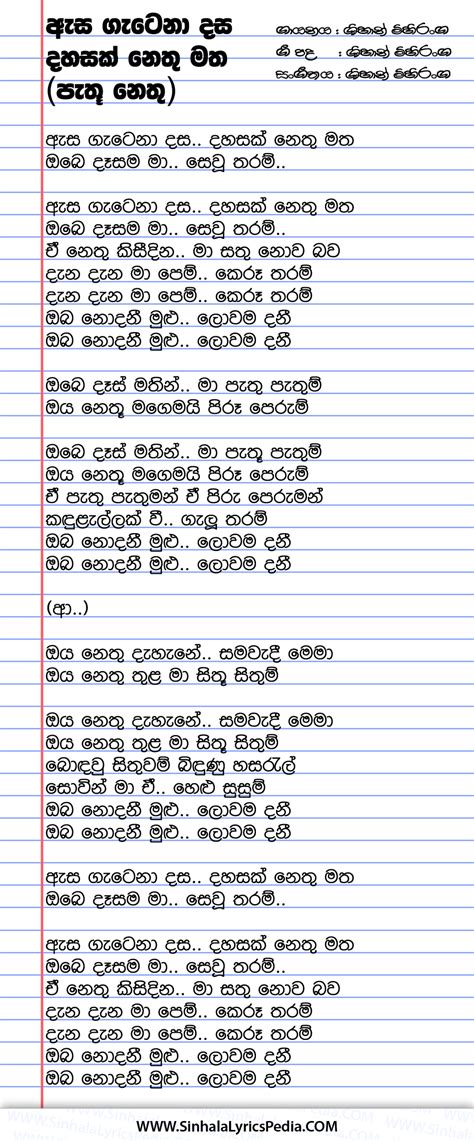 ඇස ගැටෙනා දස
දහසක් නෙතු මත
(පැතූ නෙතු)
ගායනය : ශිහාන් මිහිරංග
ගී පද : ශිහාන් මිහිරංග
සංගීතය : ශිහාන් මිහිරංග
ඇස ගැටෙනා දස.. දහසක් නෙතු මත
ඔබෙ දෑසම මා.. සෙවූ තරම්..
ඇස ගැටෙනා දස.. දහසක් නෙතු මත
ඔබෙ දෑසම මා.. සෙවූ තරම්..
ඒ නෙතු කිසීදින.. මා සතු නොව බව
දැන දැන මා පෙම්.. කෙරූ තරම්
දැන දැන මා පෙම්.. කෙරූ තරම්
ඔබ නොදනී මුළු.. ලොවම දනී
ඔබ නොදනී මුළු.. ලොවම දනී
ඔබෙ දෑස් මතින්.. මා පැතු පැතුම්
ඔය නෙතූ මගෙමයි පිරූ පෙරුම්
ඔබෙ දෑස් මතින්.. මා පැතූ පැතුම්
ඔය නෙතූ මගෙමයි පිරූ පෙරුම්
ඒ පැතු පැතුමන් ඒ පිරු පෙරුමන්
කඳුළැල්ලක් වී.. ගැලූ තරම්
ඔබ නොදනී මුළු.. ලොවම දනී
ඔබ නොදනී මුළු.. ලොවම දනී
(ආ..)
ඔය නෙතු දැහැනේ.. සමවැදී මෙමා
ඔය නෙතු තුළ මා සිතූ සිතුම්
ඔය නෙතු දැහැනේ.. සමවැදී මෙමා
ඔය නෙතු තුළ මා සිතූ සිතුම්
බොඳවු සිතුවම් බිඳුණු හසරැල්
සොවින් මා ඒ.. හෙළු සුසුම්
ඔබ නොදනී මුළු.. ලොවම දනී
ඔබ නොදනී මුළු.. ලොවම දනී
ඇස ගැටෙනා දස.. දහසක් නෙතු මත
ඔබෙ දෑසම මා.. සෙවූ තරම්..
ඇස ගැටෙනා දස.. දහසක් නෙතු මත
ඔබෙ දෑසම මා.. සෙවූ තරම්..
ඒ නෙතු කිසිදින.. මා සතු නොව බව
දැන දැන මා පෙම්.. කෙරූ තරම්
දැන දැන මා පෙම්.. කෙරූ තරම්
ඔබ නොදනී මුළු.. ලොවම දනී
ඔබ නොදනී මුළු.. ලොවම දනී
WWW.SinhalaLyricsPedia.COM